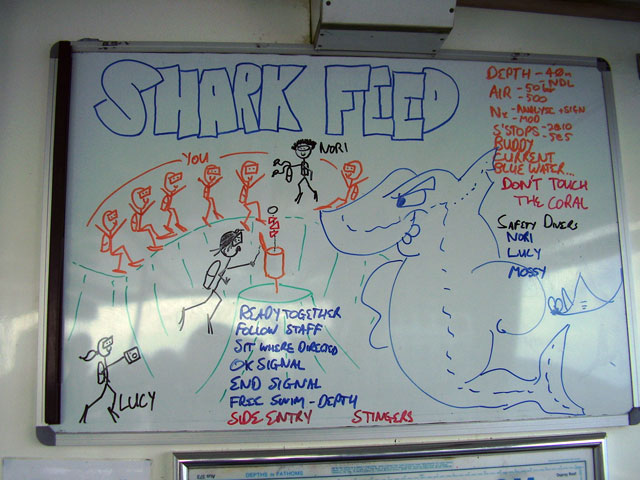 SHARK FEED
YOU
NORI
LUCY
READY TOGETHER
FOLLOW STAFF
SIT WHERE DIRECTED
OK SIGNAL
END SIGNAL
FREE SWIM - DEPTH
SIDE ENTRY STINGERS
DEPTH - 40m
- NDL
AIR - 50 bar
- 500
Nx - ANALYSE + SIGN
- MOD
S'STOPS - 2@10
5@5
BUDDY
CURRENT
BLUE WATER...
DON'T TOUCH
THE CORAL
SAFETY DIVERS
NORI
LUCY
MOSSY
DEPTHS IN FATHOMS